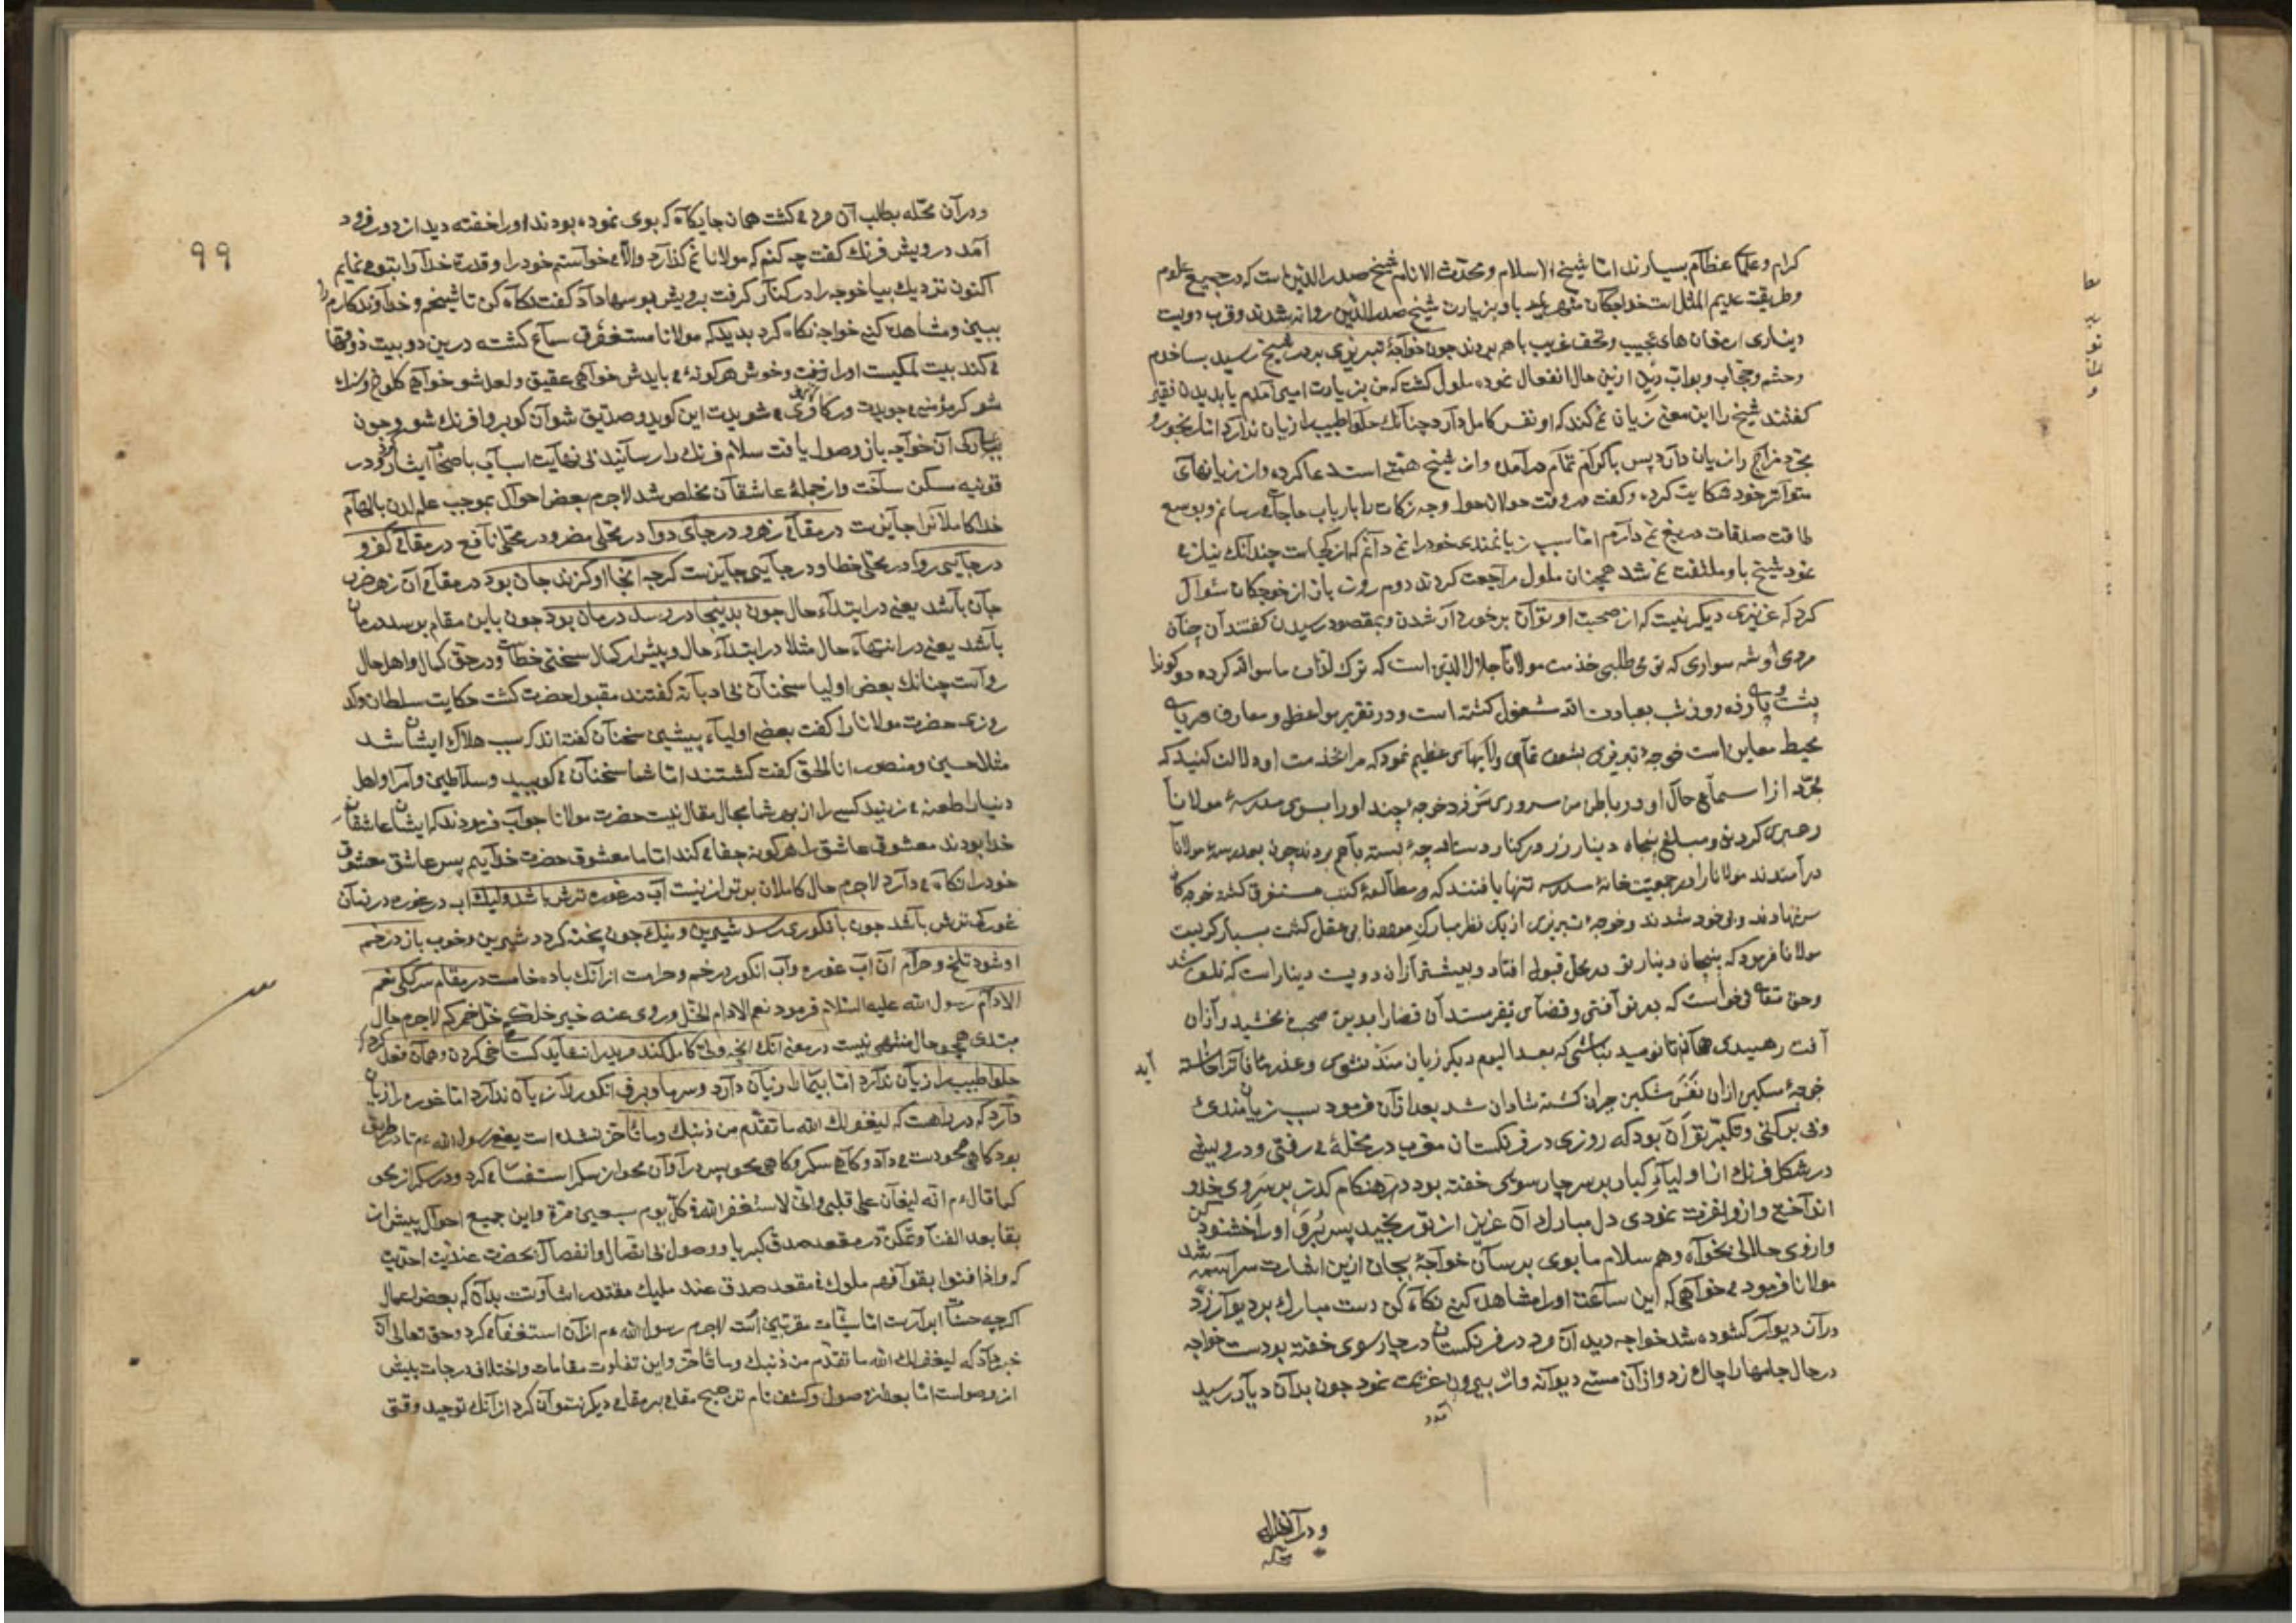 کرام و علماء عظام بسیارند اما شیخ الاسلام و محدث الانام شیخ صدر الدین است که در جمیع علوم
و طریقت عدیم المثل است خواجکان شهر باو بزیارت شیخ صدر الدین روانه شدند و قرب دویست
دیناری ارمغان های عجیب و تحف غریب باهم بردند چون خواجهٔ تبریزی بدر شیخ رسید بسا خدم
و حشم و حجاب و بواب دید ازین حال انفعال نموده ملول کشت که من بزیارت امیری آمدم یا بدیدن فقیر
کفتند شیخ را این معنی زیان نمی کند که او نفس کامل دارد چنانک حلوا طبیب را زیان ندارد اما رنجور
مزاج را زیان دارد پس باکراه تمام درآمده و از شیخ همتی استدعا کرده و از زیانهای
متواتر خود شکایت کرده و کفت در وقت حولان حول وجه زکات را بارباب حاجات می رسانم و بوسع
طاقت صدقات دریغ نمی دارم اما سبب زیانمندی خود را نمی دانم که از کجاست چندانک نیاز می
نمود شیخ باو ملتفت نمی شد همچنان ملول مراجعت کردند دوم روز باز از خوجکان سؤال
کرد که عزیزی دیکر نیست که از صحبت او توان برخوردار شدن و بمقصود رسیدن کفتند آن چنان
مردی و شه سواری که تو می طلبی خدمت مولانا جلال الدین است که ترک لذات ما سوا الله کرده دو کونرا
پشت پای زده روز و شب بعبادت الله مشغول کشته است و در تقریر مواعظ و معارف دریای
محیط معاین است خوجهٔ تبریزی بشوق تمام و لابهای عظیم نمود که مرا بخدمت او دلالت کنید که
مجرد از استماع حال او در باطن من سروری سر زد خوجه چند او را بسوی مدرسهٔ مولانا
رهبری کردند و مبلغ پنجاه دینار زر در کنار دستارچهٔ بسته باهم بردند چون بمدرسهٔ مولانا
درآمدند مولانا را در جمعیت خانهٔ مدرسه تنها یافتند که در مطالعهٔ کتب مستغرق کشته خوجه کان
سر نهادند و بی خود شدند و خوجهٔ تبریزی از یک نظر مبارک مولانا بی عقل کشت بسیار کریست
مولانا فرمود که پنجاه دینار تو در محل قبول افتاد و بیشتر از آن دویست دینار است که تلف شد
و حق تعالی می خواست که بر تو آفتی و قضای بفرستد آن قضا را بدین صحبت بخشید و از آن
آفت رهیدی هان تا نومید نباشی که بعد الیوم دیکر زیان مند نشوی و عذر ما فات را خواسته آید
خوجهٔ مسکین از آن نفس مشکین حیران کشته شادان شد بعد از آن فرمود سبب زیانمندی
و بی برکتی و تکبر تو آن بود که روزی در فرنکستان مغرب در محلهٔ می رفتی و درویشی
در شکل فرنک از اولیاء کبار بر سر چار سوی خفته بود در هنکام کذر بر سر وی خدو
انداختی و از و نفرت نمودی دل مبارک آن عزیز از تو رنجید پس برو او را خشنود کن
و از وی حلالی بخواه و هم سلام ما بوی برسان خواجهٔ بیجان ازین اشارت سراسیمه شد
مولانا فرمود می خواهی که این ساعت او را مشاهده کنی نکاه کن دست مبارک بر دیوار زد
در آن دیوار کشوده شد خواجه دید آن مرد در فرنکستان در چار سوی خفته بود ست خواجه
در حال جامها را چاک زد و از آن مستی دیوانه وار بیرون آمد و عزیمت نمود چون بدان دیار رسید
و در آن محله
محله
و در آن محله بطلب آن مرد می کشت همان جایکاه که بوی نموده بودند او را خفته دید از دور فرود
آمد درویش فرنک کفت چه کنم که مولانا نمی کذارد والا می خواستم خود را و قدرة خدا را بتو می نمایم
اکنون نزدیک بیا خوجه را در کنار کرفت برویش بوسها داد کفت نکاه کن تا شیخم و خداوندکارم را
ببینی و مشاهده کنی خواجه نکاه کرد بدید که مولانا مستغرق سماع کشته درین دو بیت ذوقها
می کند بیت ملکیست او را زفت و خوش هر کونهٔ می بایدش خواهی عقیق و لعل شو خواهی کلوخ و سنک
شو کر مؤمنی می جویدت ور کافری می شویدت این کوید و صدیق شو آن کو برو افرنک شو و چون
آن خواجه باز وصول یافت سلام فرنک را رسانید بی نهایت اسباب باصحاب ایثار کرد و در
قونیه مسکن ساخت و از جملهٔ عاشقان مخلص شد لاجرم بعض احوال بموجب علم لدن بالهام
خدا کاملانرا جایزست در مقامی زهر و در جای دوا در محلی مضر و در محلی نافع در مقامی کفر و
در جایی روا در محلی خطا و در جایی جایزست کرچه اینجا او کزند جان بود در مقامی آن زهر ضر
جان باشد یعنی در ابتداء حال چون بدینجا در رسد درمان بود چون باین مقام برسد درمان
باشد یعنی در انتهاء حال مثلا در ابتداء حال و پیش از کمال سخنی خطاست و در حق کمال و اهل حال
رواست چنانک بعض اولیا سخنان بی ادبانه کفتند مقبول حضرت کشت حکایت سلطان ولد
روزی حضرت مولانا را کفت بعضی اولیاء پیشین سخنان کفته اند که سبب هلاک ایشان شد
مثلا حسین و منصور انا الحق کفت کشتند اما شما سخنان می کویید و سلاطین و امرا و اهل
دنیا را طعنه می زنید کسی را از بهر شما مجال مقال نیست حضرت مولانا جواب فرمودند که ایشان عاشقان
خدا بودند معشوق عاشق را هر کونه جفا می کند اما ما معشوق حضرت خداییم پس عاشق معشوق
خود را نکاه می دارد لاجرم حال کاملان برتر ازینست آب در غوره ترش باشد ولیک آب در غوره در زمان
غورکی ترش باشد چون بانکوری رسد شیرین و نیک چون پخته کردد شیرین و خوب باز در خم
او شود تلخ و حرام آن آب غوره و آب انکور در خم و حرامست از آنک باده خامست در مقام سرککی نعم
الادام رسول الله علیه السلام فرمود نعم الادام الخل و روی عنه خیر خلکم خل خمرکم لاجرم حال
مبتدی همچو حال منتهی نیست
حلوا طبیب را زیان ندارد اما بیمار را زیان دارد و سرما و برف انکور را زیان ندارد اما غوره را زیان
دارد که در راهست که لیغفر لک الله ما تقدم من ذنبک و ما تأخر نشده است یعنی رسول الله ءم تا در طریق
بود کاهی محو دست می داد و کاهی سکر و کاهی صحو پس در آوان محو از سکر استغفار می کرد و در سکر از محو
کما قال ءم انه لیغان علی قلبی و انی لاستغفر الله فی کل یوم سبعین مرة و این جمیع احوال پیش از
بقا بعد الفنا و تمکن در مقعد صدق کبریا و وصول بی اتصال و انفصال بحضرت عندیت احدیت
که و اذا فنوا بقوا فهم ملوک فی مقعد صدق عند ملیک مقتدر اشارتست بدان که بعض اعمال
اکرچه حسنات ابرارست اما سیئات مقربین است لاجرم رسول الله ءم از آن استغفار می کرد و حق تعالی آن
خبر داد که لیغفر لک الله ما تقدم من ذنبک و ما تأخر و این تفاوت مقامات و اختلاف درجات پیش
از وصولست اما بعد از وصول و کشف تام ترجیح مقامی بر مقامی دیکر نتوان کرد از آنک توحید وقتی
۹۹